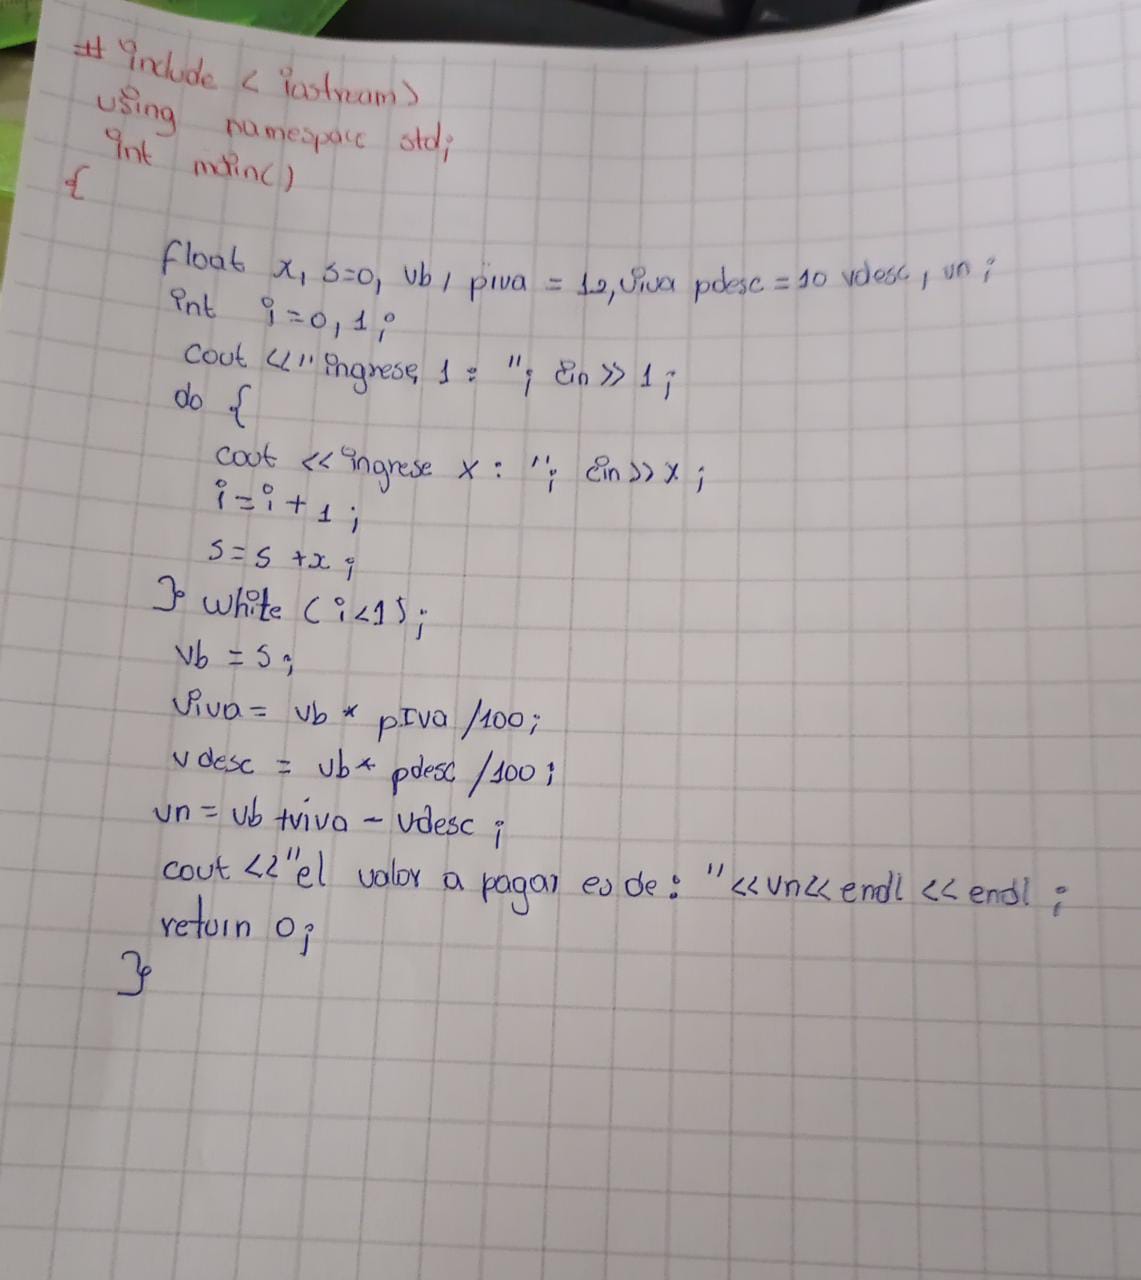 # include < iostream>
using namespace std;
int main()
{
float x, s=0, vb, piva = 12, viva pdesc = 10 vdesc, vn;
int i=0, 1;
cout <<" ingrese 1: "; cin >> 1;
do {
cout << ingrese x: "; cin>> x;
i=i+1;
s=s+x;
} white (i<1);
vb = s;
viva= vb * pIva /100;
vdesc = vb* pdesc /100;
vn = vb +viva - vdesc;
cout <<"el valor a pagar es de: "<<vn<< endl << endl;
return 0;
}